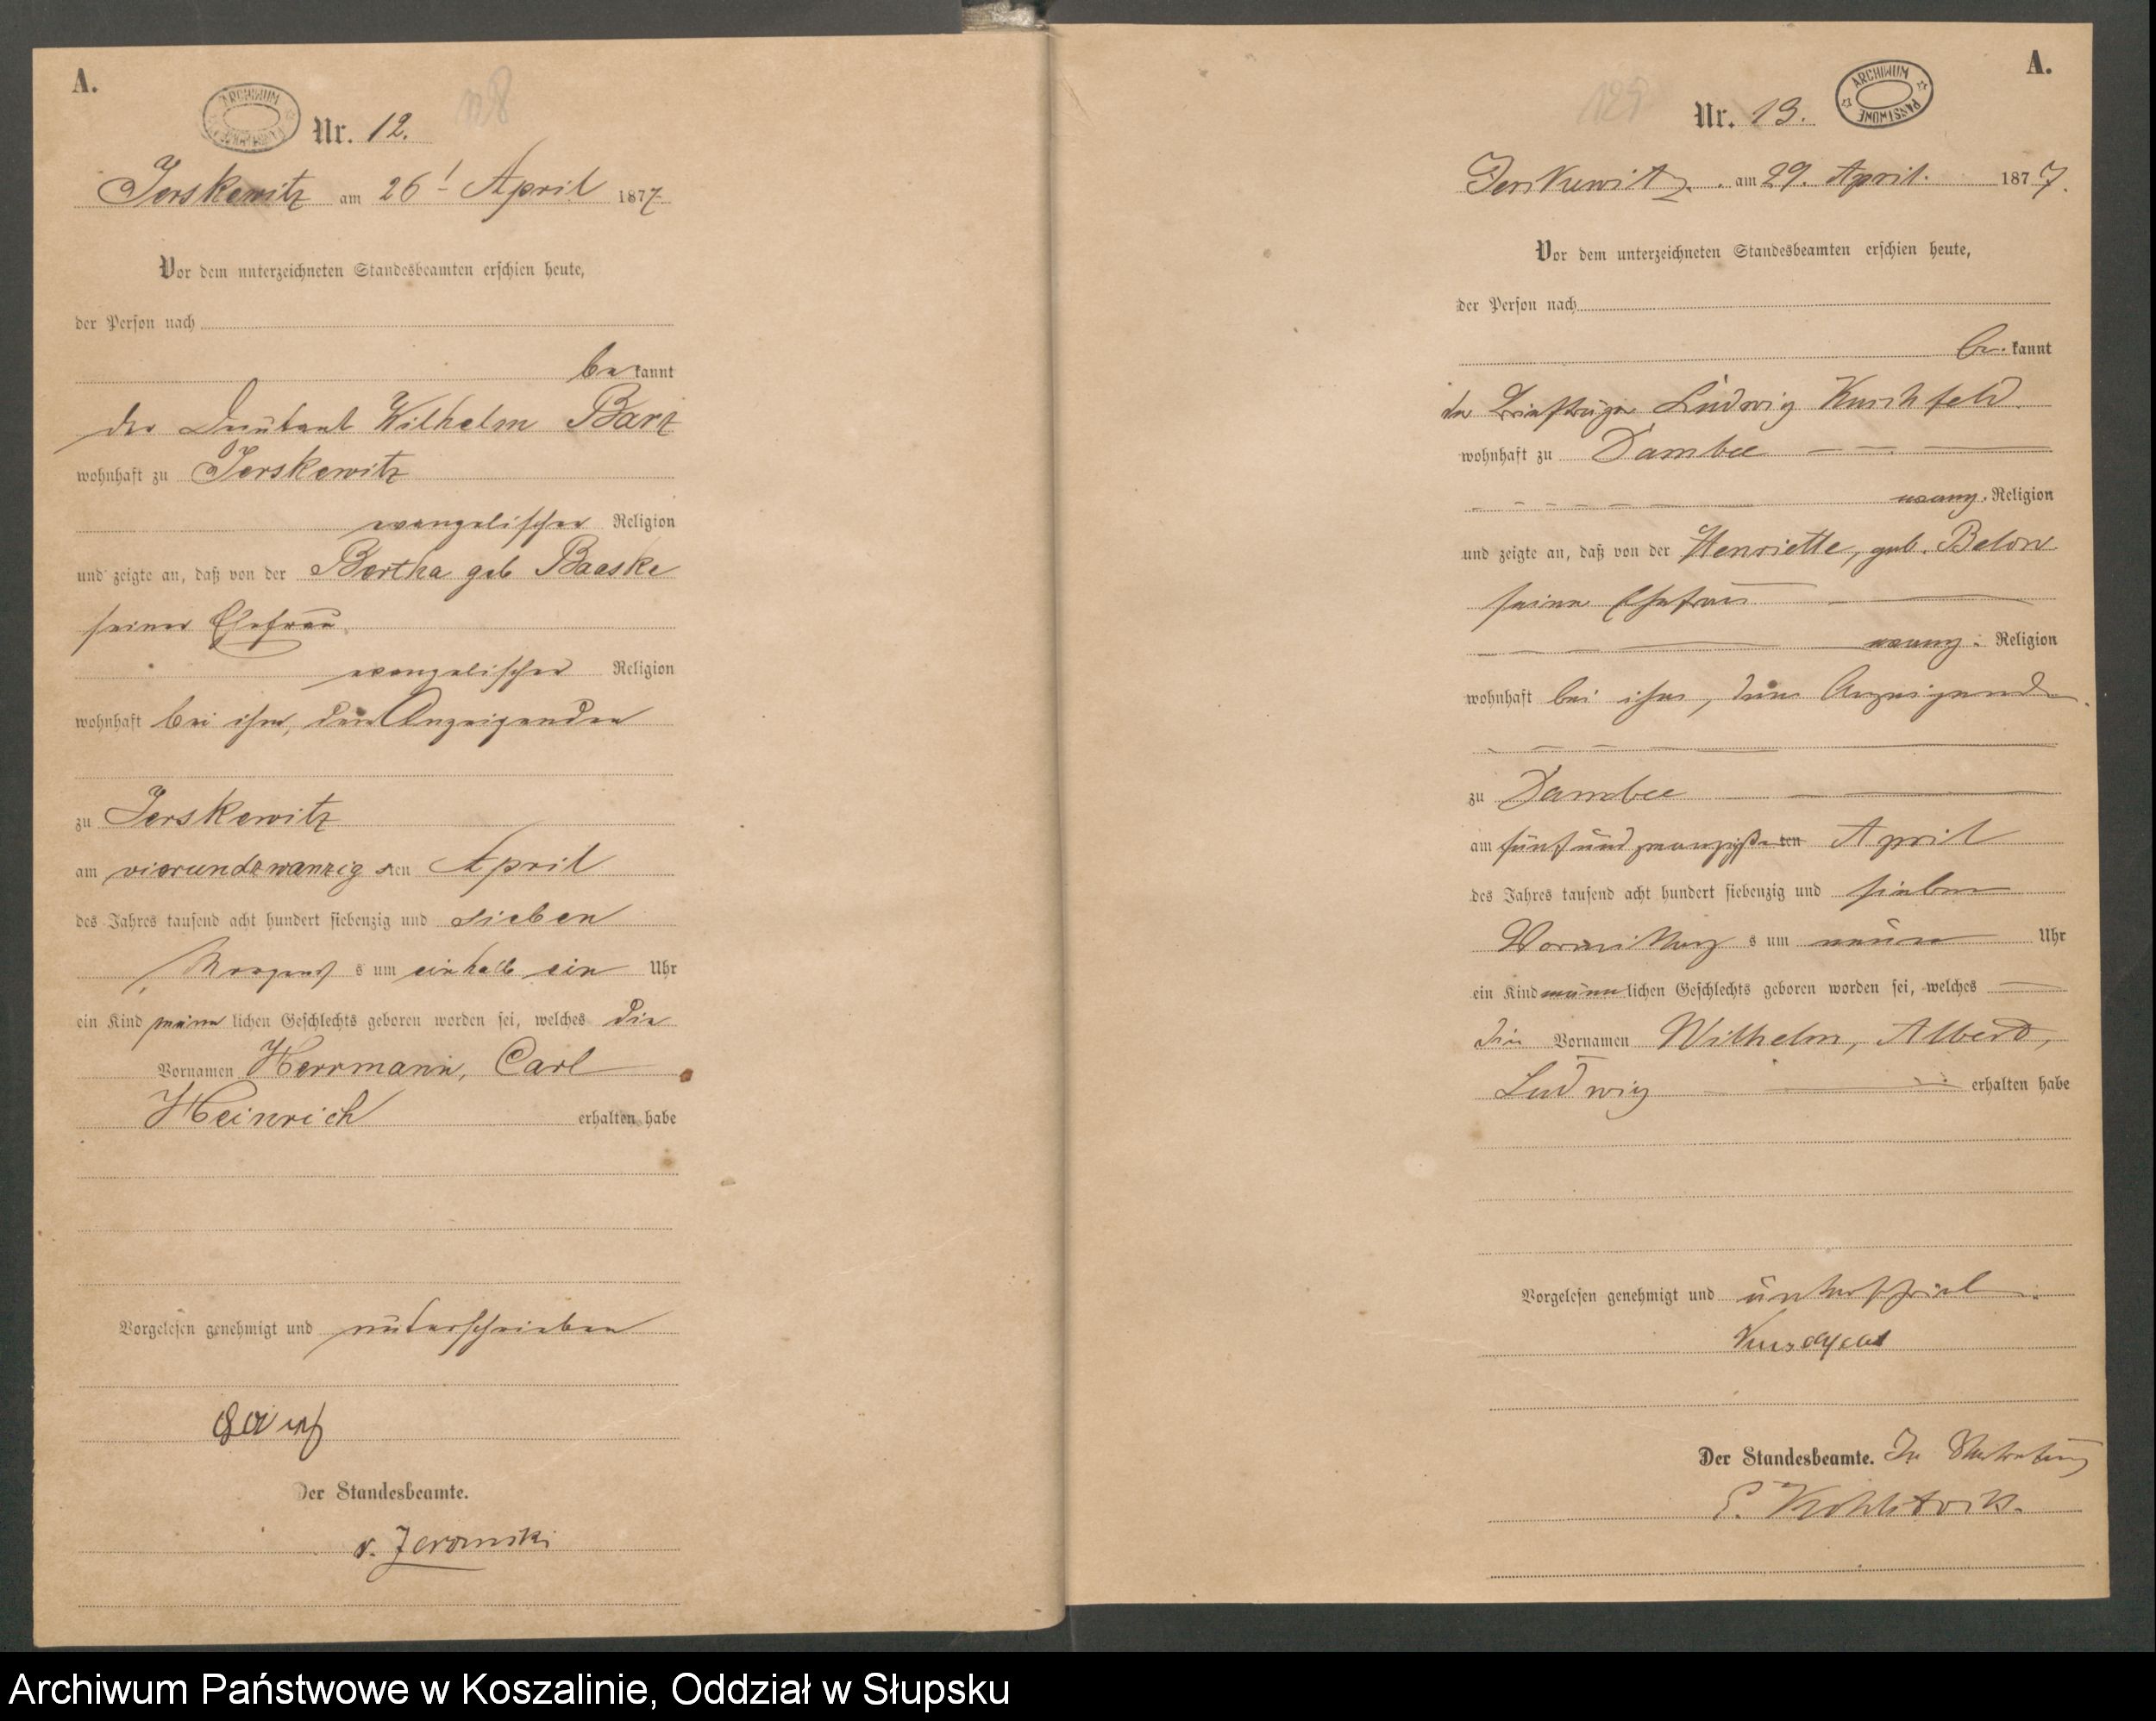 A.
ARCHIWUM PAŃSTWOWE
Nr. 12.
Jerskewitz am 26! April 1877.
Vor dem unterzeichneten Standesbeamten erschien heute,
der Person nach
be kannt
der Wilhelm Barz
wohnhaft zu Jerskewitz
evangelischer Religion
und zeigte an, daß von der Bertha geb Baaske
seiner Ehefrau
evangelischer Religion
wohnhaft bei ihm, dem Anzeigenden
zu Jerskewitz
am vierundzwanzig sten April
des Jahres tausend acht hundert siebenzig und sieben
Morgens s um einhalb ein Uhr
ein Kind männ lichen Geschlechts geboren worden sei, welches die
Vornamen Herrmann, Carl
Heinrich erhalten habe
Vorgelesen genehmigt und unterschrieben
Der Standesbeamte.
A.
ARCHIWUM PAŃSTWOWE
Nr. 13.
Jerskewitz am 29. April. 1877.
Vor dem unterzeichneten Standesbeamten erschien heute,
der Person nach
be. kannt
der Briefträger Ludwig
wohnhaft zu Dambee
evang. Religion
und zeigte an, daß von der Henriette, geb. Below
seiner Ehefrau
evang. Religion
wohnhaft bei ihm, dem Anzeigenden
zu Dambee
am fünfundzwanzigsten April
des Jahres tausend acht hundert siebenzig und sieben
Vormittag s um neun Uhr
ein Kind männlichen Geschlechts geboren worden sei, welches
die Vornamen Wilhelm, Albert,
Ludwig erhalten habe
Vorgelesen genehmigt und unterschrieben.
Der Standesbeamte. In Vertretung
Archiwum Państwowe w Koszalinie, Oddział w Słupsku